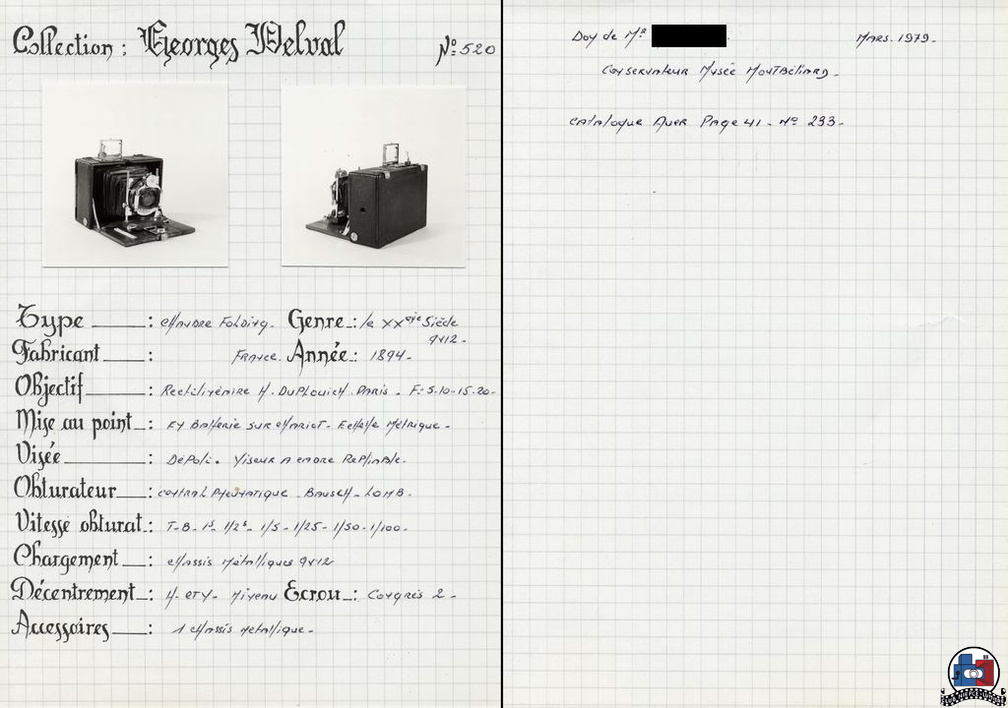 Collection : Georges Delval Nº 520
Type : Chambre Folding. Genre : le XXeme Siècle
9x12.
Fabricant : France. Année : 1894.
Objectif : Rectilinéaire H. Duplouich. Paris. F: 5-10-15-20.
Mise au point : Ey Batterie sur chariot. Echelle Métrique.
Visée : Dépoli. Viseur A cadre Repliable.
Obturateur : central Pneumatique. Bausch-LOMB.
Vitesse obturat. : T-B- 1s. 1/2s- 1/5- 1/25- 1/50- 1/100-
Chargement : chassis Métalliques 9x12
Décentrement : H. et V- Niveau Ecrou : Congrès 2.
Accessoires : 1 chassis metallique.
Don de Mr Mars. 1979.
Conservateur Musée Montbéliard.
Catalogue Auer Page 41. Nº 233.